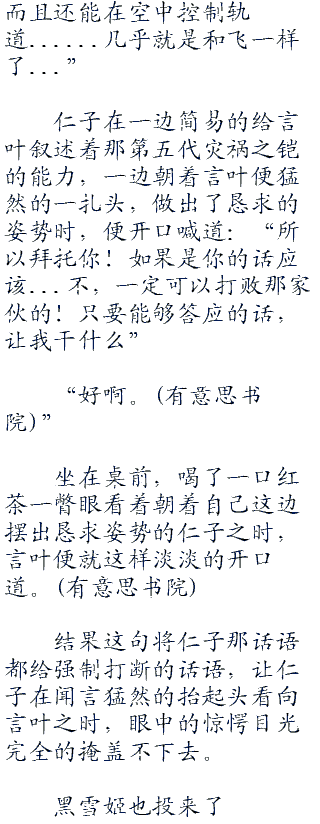 而且还能在空中控制轨
道......几乎就是和飞一样
了...”
仁子在一边简易的给言
叶叙述着那第五代灾祸之铠
的能力，一边朝着言叶便猛
然的一扎头，做出了恳求的
姿势时，便开口喊道：“所
以拜托你！如果是你的话应
该...不，一定可以打败那家
伙的！只要能够答应的话，
让我干什么”
“好啊。(有意思书
院)”
坐在桌前，喝了一口红
茶一瞥眼看着朝着自己这边
摆出恳求姿势的仁子之时，
言叶便就这样淡淡的开口
道。(有意思书院)
结果这句将仁子那话语
都给强制打断的话语，让仁
子在闻言猛然的抬起头看向
言叶之时，眼中的惊愕目光
完全的掩盖不下去。
黑雪姬也投来了